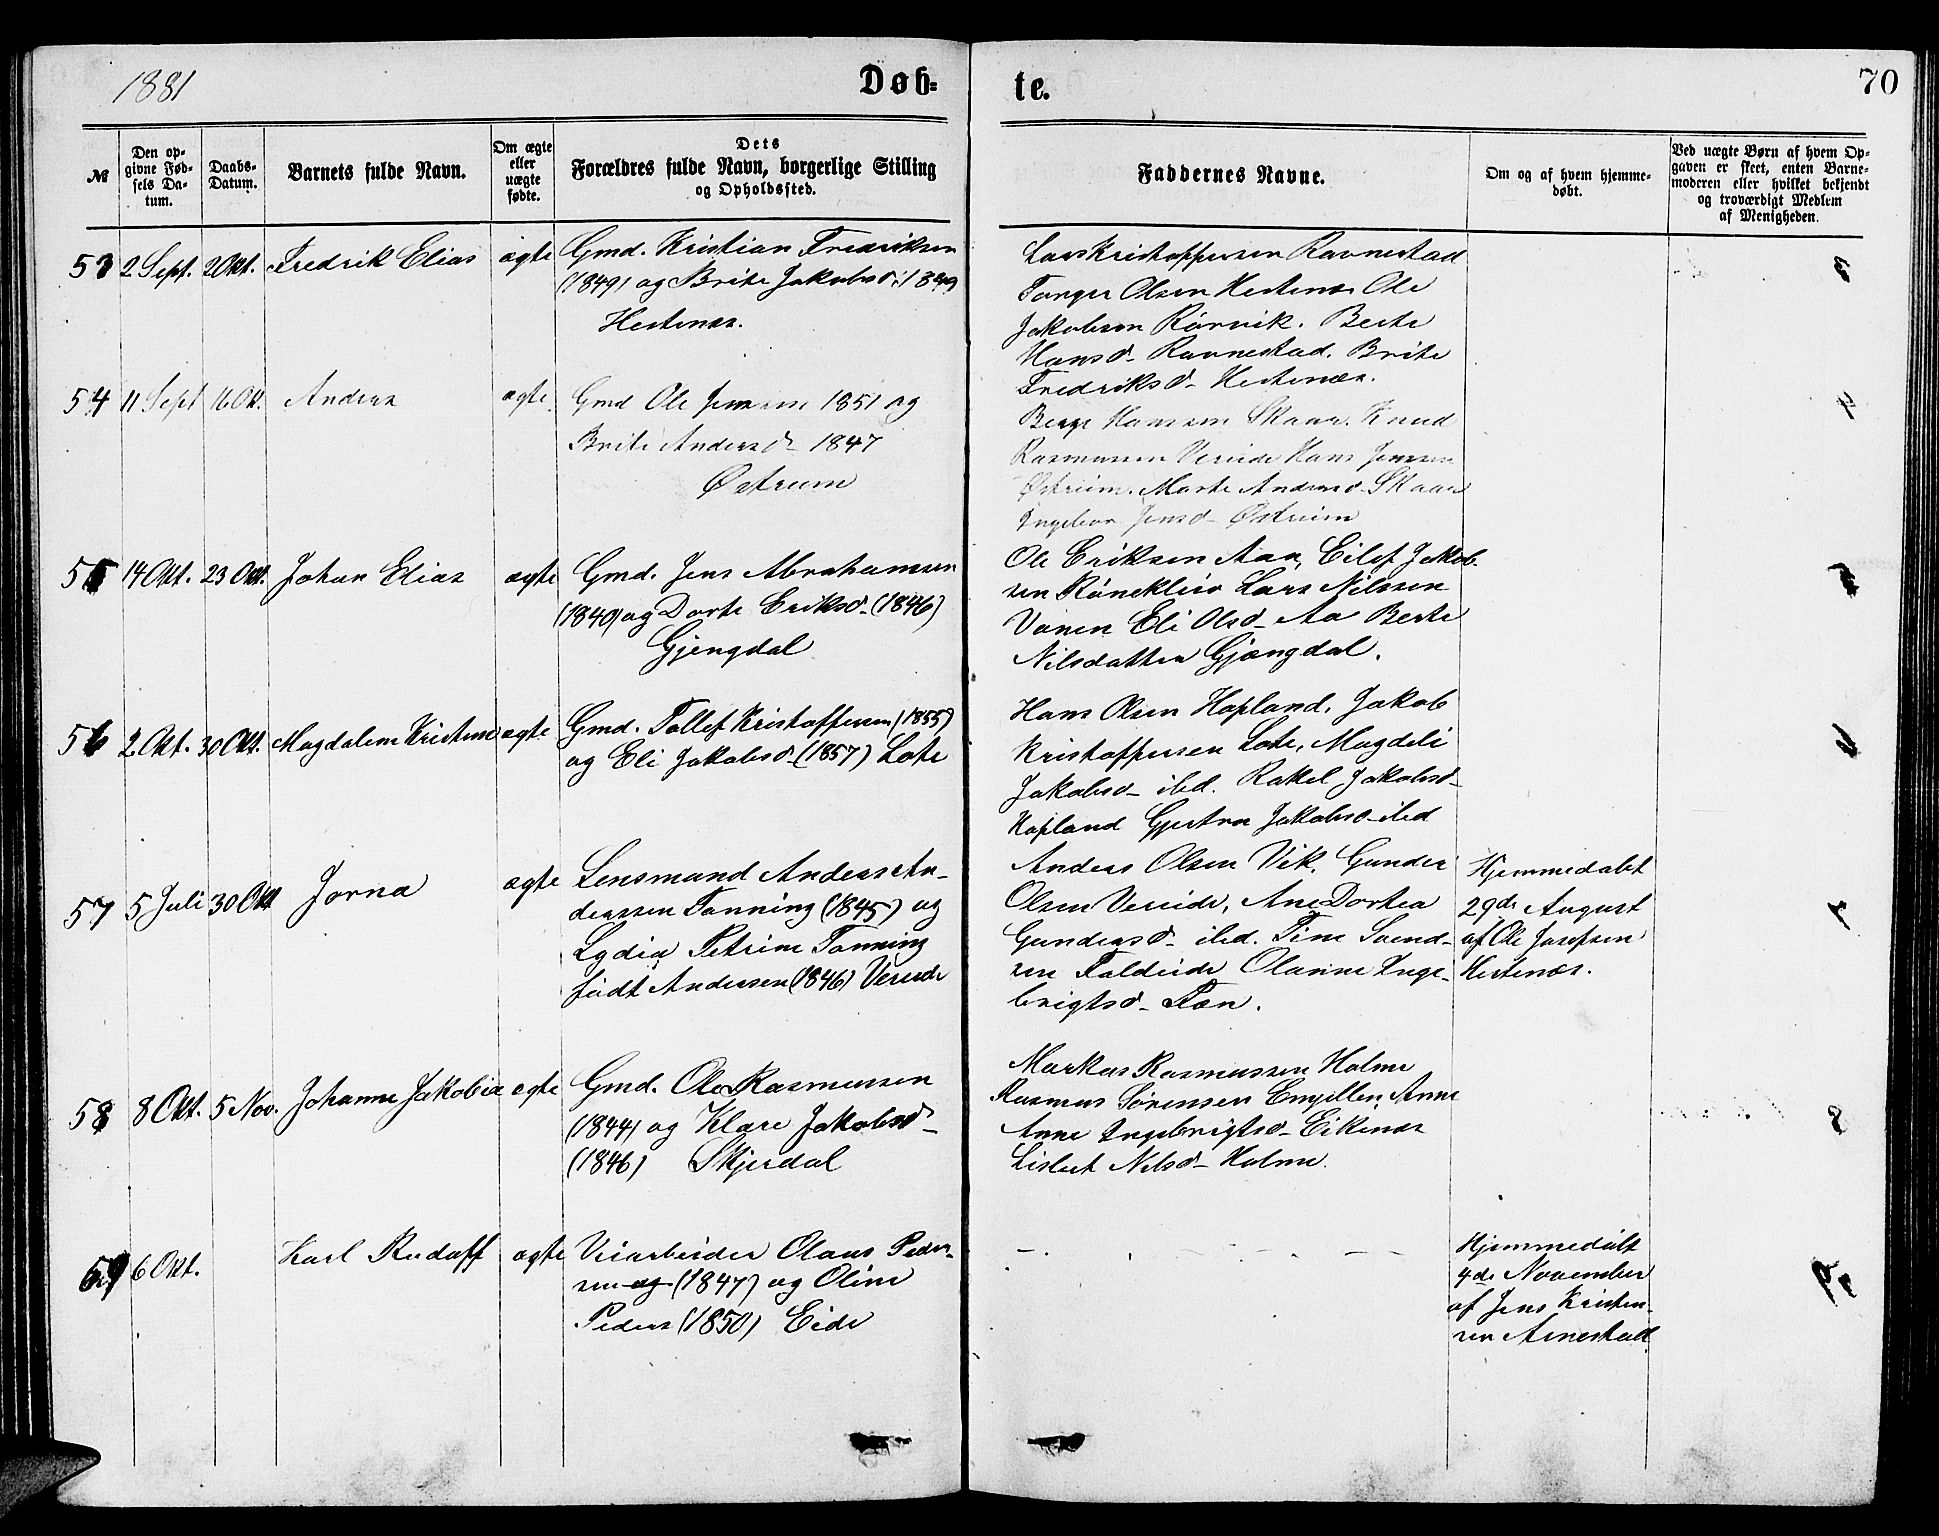 1881
Døb-
te.
70
No
Den op-
givne Fød-
sels Da-
tum.
Daabs-
Datum.
Barnets fulde Navn.
Om ægte
eller
uægte
fødte.
Dets
Forældres fulde Navn, borgerlige Stilling
og Opholdssted.
Faddernes Navne.
Om og af hvem hjemme-
døbt.
Ved uægte Børn af hvem Op-
gaven er skeet, enten Barne-
moderen eller hvilket bekjendt
og troværdigt Medlem
af Menigheden.
53 2 Sept. 2 Okt. Fredrik Elias ægte
Gmd. Kristian Fredriksen
(1849) og Brite Jakobsd. 1849
Hestenæs.
Lars Kristoffersen Ravnestad
Torger Olsen Hestenæs Ole
Jakobsen Rørvik. Berte
Hansd- Ravnestad. Brite
Fredriksd- Hestenæs.
54 11 Sept 16 Okt. Anders ægte.
Gmd Ole Jenssen 1851 og
Brite Andersd- 1847
Østreim
Berge Hanssen Skaar. Knud
Rasmussen Vereide Hans Jenssen
Østreim. Marte Andersd- Skaar
Ingebor Jensd- Østreim
55 14 Okt. 23 Okt. Johan Elias ægte
Gmd. Jens Abrahamsen
(1840) og Dorte Eriksd- (1846)
Gjengdal
Ole Eriksen Aaa, Eilef Jakob-
sen Røneklev Lars Nilssen
Vonen Eli Olsd- Aa Berte
Nilsdatter Gjængdal.
56 2 Okt. 30 Okt. Magdalene Kristine ægte
Gmd. Tollef Kristoffersen (1855)
og Eli Jakobsd- (1857) Lote
Hans Olsen Hopland. Jakob
Kristoffersen Lote, Magdeli
Jakobsd- ibd. Rakel Jakobsd-
Hopland Gjertru Jakobsd- ibd
57 5 Juli 30 Okt Jorna ægte
Lensmand Anders An-
derssen Tonning (1845) og
Lydia Petrine Tonning
født Andersen (1846) Vereide
Anders Olsen Vik. Gunder
Olsen Vereide, Ane Dortea
Gundersd- ibd. Tine Svend-
sen Faldeide Olanne Inge-
brigtsd- Fæn.
Hjemmedøbt
29de August
af Ole Josefsen
Hestenæs.
58 8 Okt. 5 Nov. Johanne Jakobia ægte
Gmd. Ole Rasmussen
(1844) og Klare Jakobsd-
(1846) Skjerdal
Markus Rasmussen Holme
Rasmus Sørensen Anne
Anne Ingebrigtsd- Eikenæs
Lisbet Nilsd- Holme.
59 6 Okt. Karl Rudolf ægte
Veiarbeider Olaus Peder-
sen og (1847) og Oline
Peders (1850) Eide
Hjemmedøbt
4de November
af Jens Kristen-
sen Arnestad